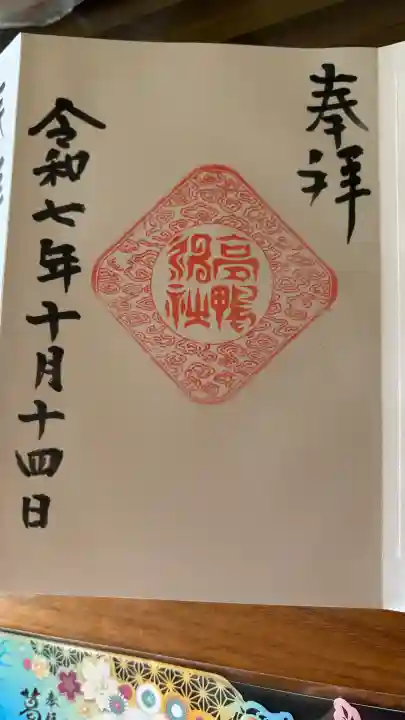 奉拝
高鴨神社
令和七年十月十四日
奉拝
葛